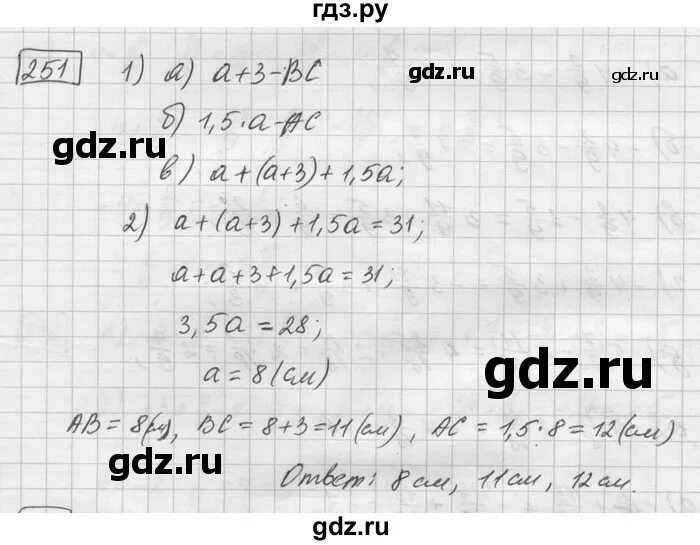 гдз.ру
251 1) а) a+3-BC
б) 1,5·a-AC
в) a+(a+3)+1,5a;
2) a+(a+3)+1,5a=31;
a+a+3+1,5a=31;
3,5a=28;
a=8(см)
AB=8(см), BC=8+3=11(см), AC=1,5·8=12(см)
Ответ: 8см, 11см, 12см.
gdz.ru
gdz.ru
gdz.ru
gdz.ru
gdz.ru
gdz.ru
гдз.ру